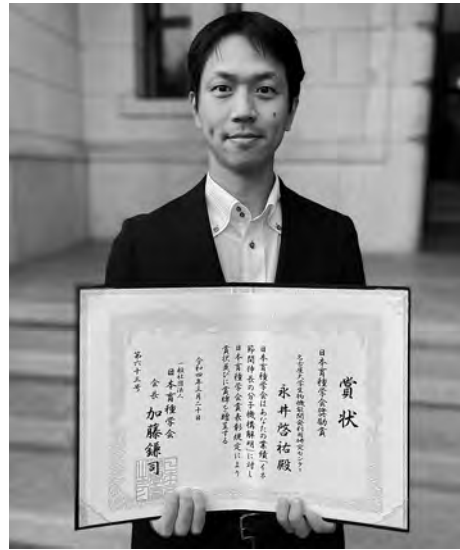 賞状
日本育種学会奨励賞
名古屋大学生物機能開発利用研究センター
永井啓祐殿
日本育種学会はあなたの業績「イネ
節間伸長の分子機構解明」に対し
日本育種学会賞表彰規定により
賞状並びに賞牌を贈呈する
令和四年三月二十日
一般社団法人
日本育種学会
会長 加藤鎌司
第六十三号